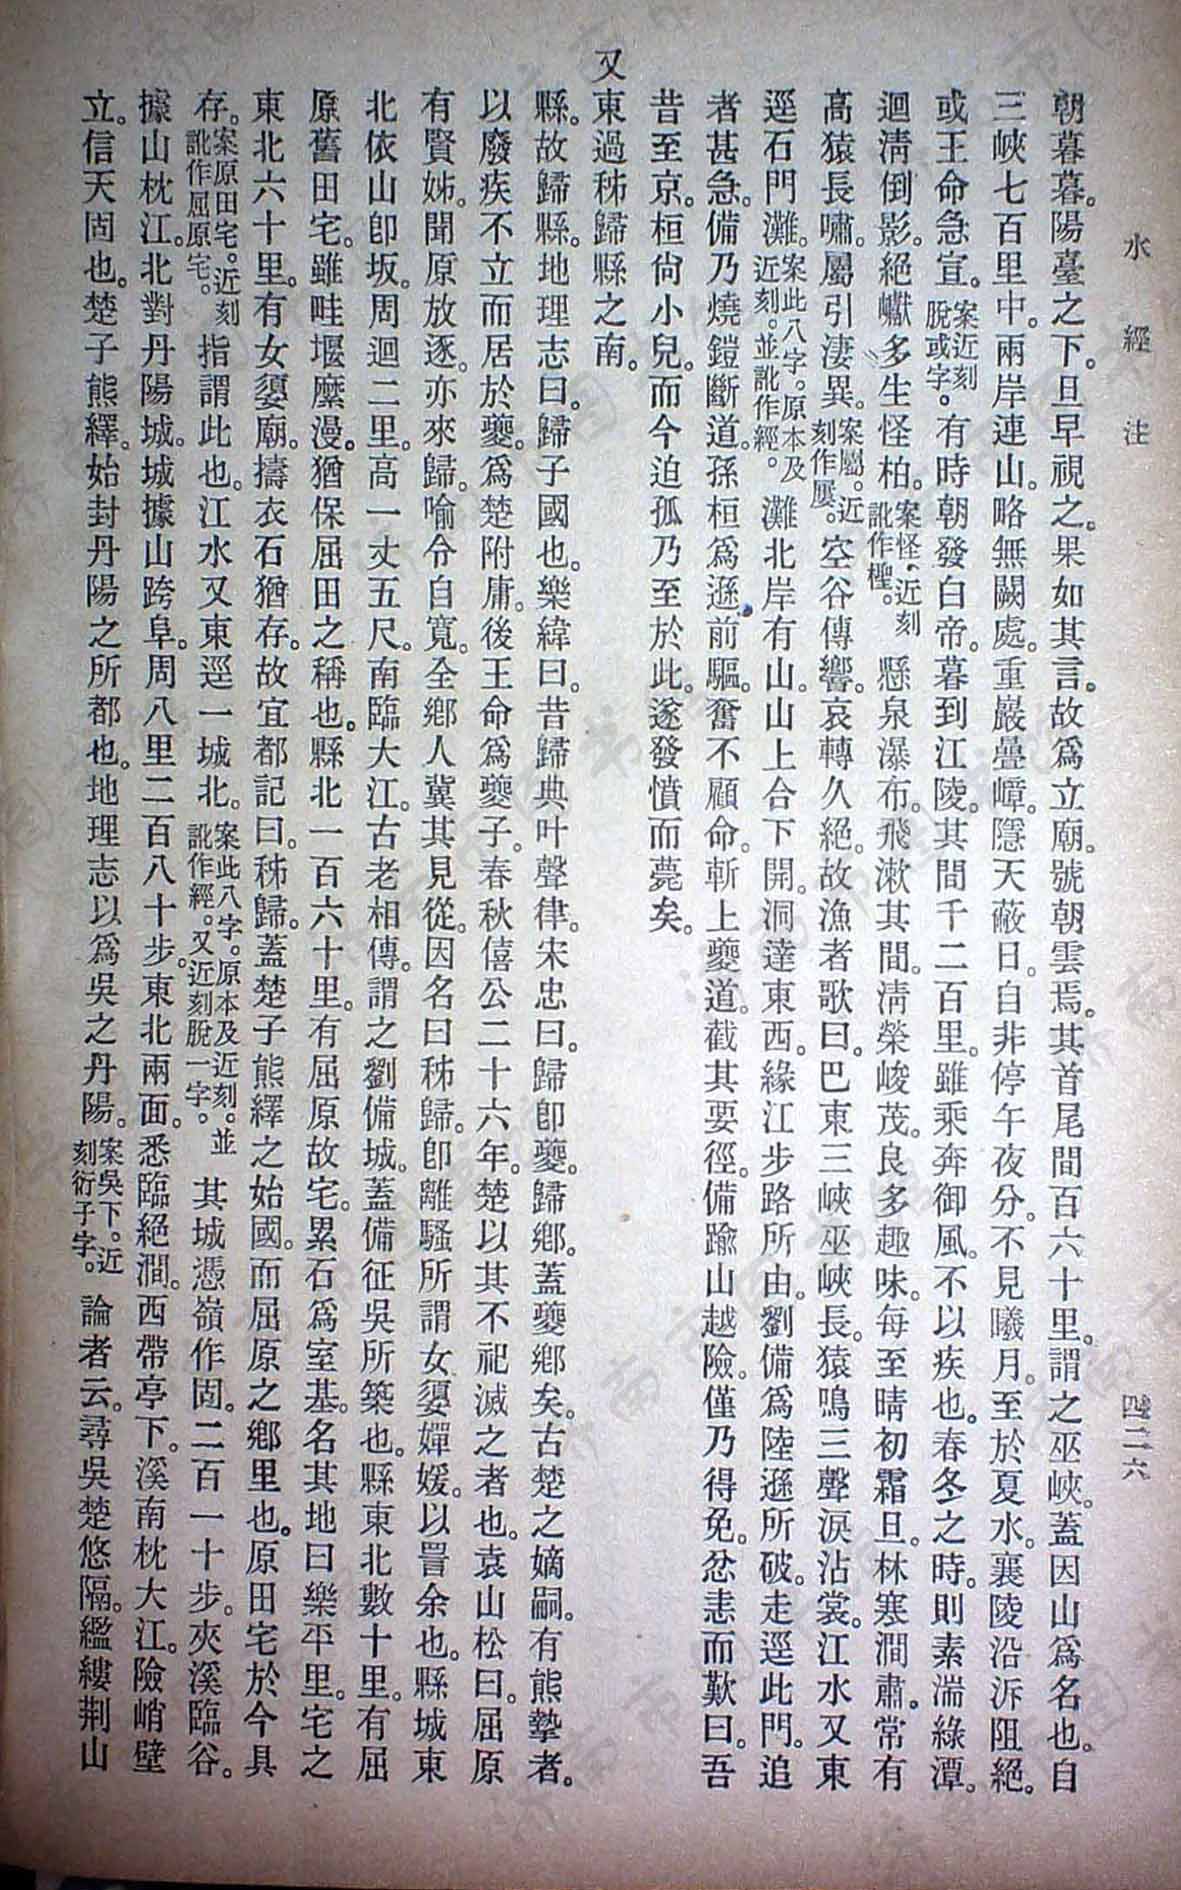 水經注
四二六
朝暮暮。陽臺之下。旦早視之。果如其言。故爲立廟。號朝雲焉。其首尾間百六十里。謂之巫峽。蓋因山爲名也。自
三峽七百里中。兩岸連山。略無闕處。重巖疊嶂。隱天蔽日。自非停午夜分。不見曦月。至於夏水。襄陵沿泝阻絕。
或王命急宣。案近刻脫或字。有時朝發白帝。暮到江陵。其間千二百里。雖乘奔御風。不以疾也。春冬之時。則素湍綠潭。
迴淸倒影。絕巘多生怪柏。案怪、近刻訛作檉。懸泉瀑布。飛漱其間。淸榮峻茂。良多趣味。每至晴初霜旦。林寒澗肅。常有
高猿長嘯。屬引淒異。案屬。近刻作屢。空谷傳響。哀轉久絕。故漁者歌曰。巴東三峽巫峽長。猿鳴三聲淚沾裳。江水又東
逕石門灘。案此八字。原本及近刻。並訛作經。灘北岸有山。山上合下開。洞達東西。緣江步路所由。劉備爲陸遜所破。走逕此門。追
者甚急。備乃燒鎧斷道。孫桓爲遜前驅。奮不顧命。斬上夔道。截其要徑。備踰山越險。僅乃得免。忿恚而歎曰。吾
昔至京。桓尙小兒。而今迫孤乃至於此。遂發憤而薨矣。
又東過秭歸縣之南。
縣。故歸縣。地理志曰。歸子國也。樂緯曰。昔歸典叶聲律。宋忠曰。歸卽夔。歸鄕。蓋夔鄕矣。古楚之嫡嗣。有熊摯者。
以廢疾不立而居於夔。爲楚附庸。後王命爲夔子。春秋僖公二十六年。楚以其不祀滅之者也。袁山松曰。屈原
有賢姊。聞原放逐。亦來歸。喻令自寬。全鄕人冀其見從。因名曰秭歸。卽離騷所謂女嬃嬋媛。以詈余也。縣城東
北依山卽坂。周迴二里。高一丈五尺。南臨大江。古老相傳。謂之劉備城。蓋備征吳所築也。縣東北數十里。有屈
原舊田宅。雖畦堰縻漫。猶保屈田之稱也。縣北一百六十里。有屈原故宅。累石爲室基。名其地曰樂平里。宅之
東北六十里。有女嬃廟。擣衣石猶存。故宜都記曰。秭歸。蓋楚子熊繹之始國。而屈原之鄕里也。原田宅於今具
存。案原田宅。近刻訛作屈原宅。指謂此也。江水又東逕一城北。案此八字。原本及近刻。並訛作經。又近刻脫一字。其城憑嶺作固。二百一十步。夾溪臨谷。
據山枕江。北對丹陽城。城據山跨阜。周八里二百八十步。東北兩面。悉臨絕澗。西帶亭下。溪南枕大江。險峭壁
立。信天固也。楚子熊繹。始封丹陽之所都也。地理志以爲吳之丹陽。案吳下。近刻衍子字。論者云。尋吳楚悠隔。繿縷荆山